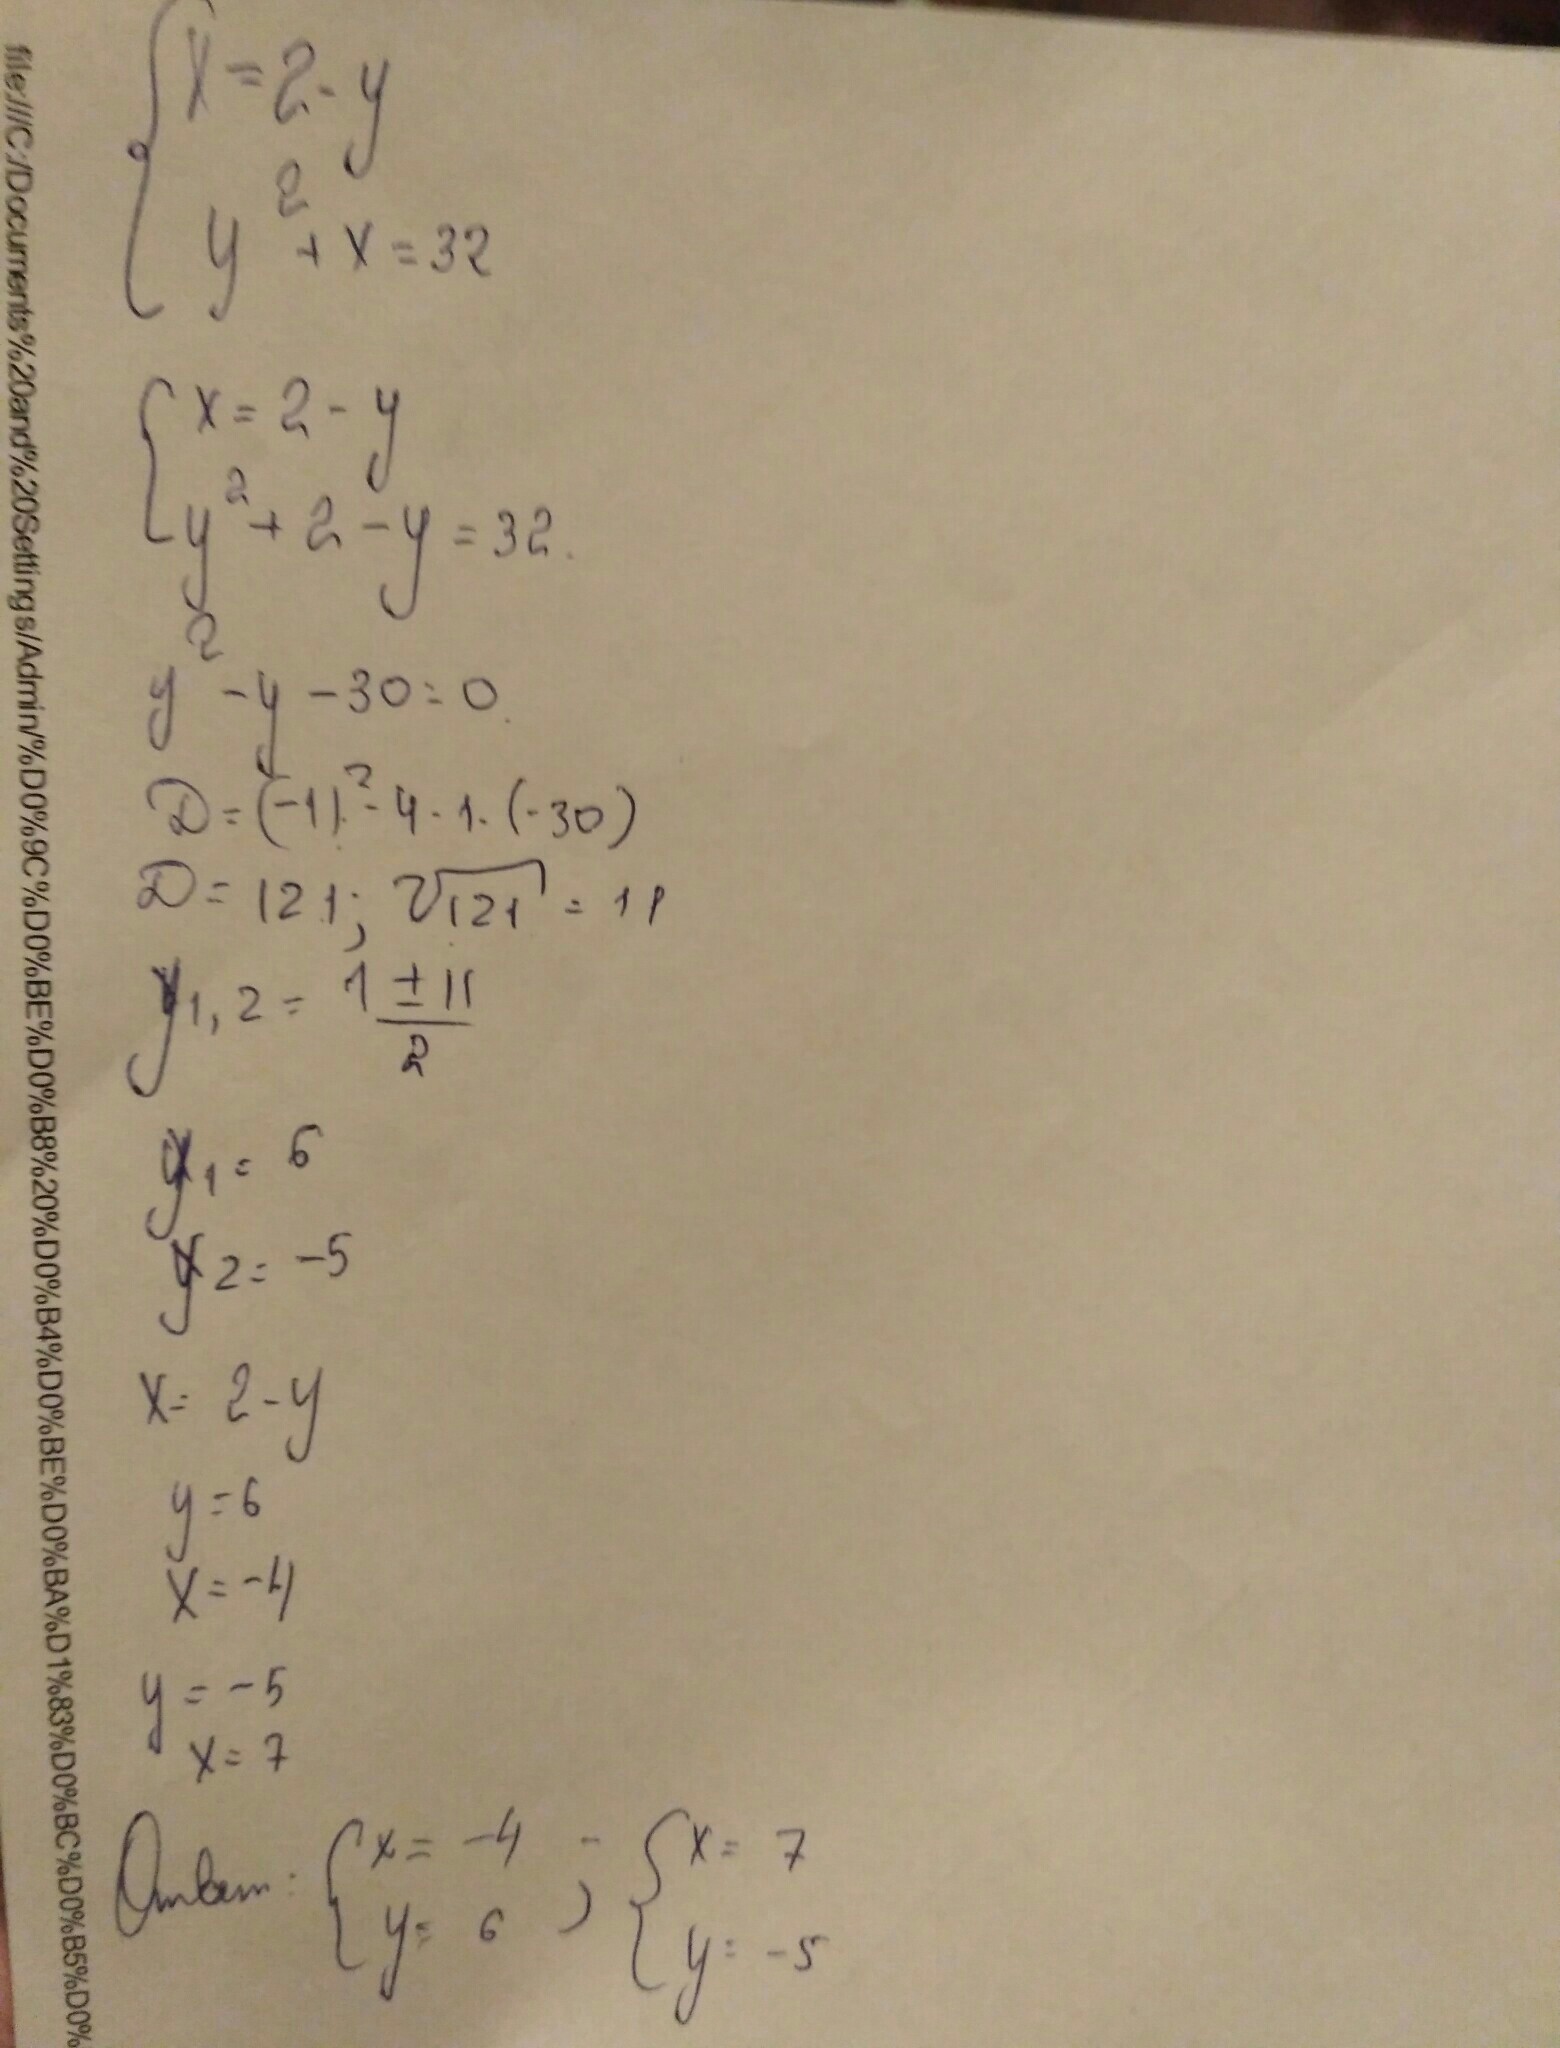 x = 2 - y
y² + x = 32
x = 2 - y
y² + 2 - y = 32.
y² - y - 30 = 0.
D = (-1)² - 4 · 1 · (-30)
D = 121; √121 = 11
y1,2 = 1 ± 11 / 2
y1 = 6
y2 = -5
x = 2 - y
y = 6
x = -4
y = -5
x = 7
Ответ: { x = -4 ; { x = 7
y = 6 y = -5
file:///C:/Documents%20and%20Settings/Admin/%D0%9C%D0%BE%D0%B8%20%D0%B4%D0%BE%D0%BA%D1%83%D0%BC%D0%B5%D0%